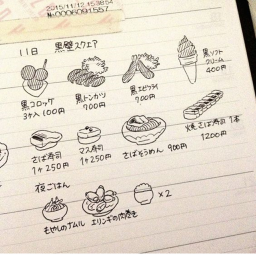 2015/11/12 15:38:54
N-0006091557
11日 黒壁スクエア
黒コロッケ
3ヶ入100円
黒トンカツ
700円
黒エビフライ
700円
黒ソフト
クリーム
400円
さば寿司
1ヶ250円
マス寿司
1ヶ250円
さばそうめん 900円
焼さば寿司 1本
1200円
夜ごはん
もやしのナムル
エリンギの肉巻き
×2